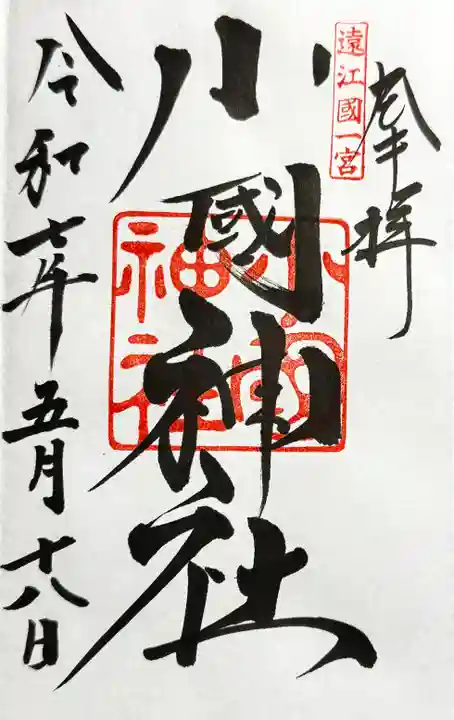 奉拝
遠江國一宮
小國神社
小國神社
令和七年五月十八日